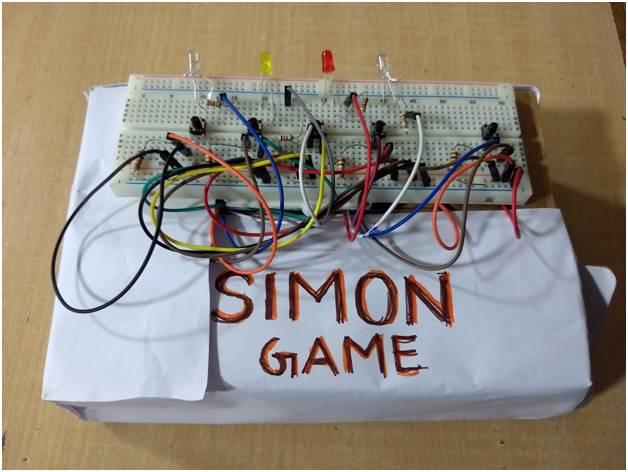 SIMON
GAME